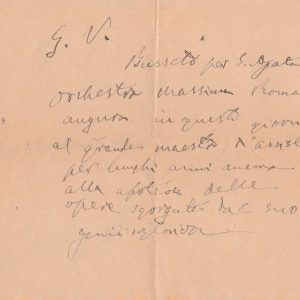 G. V.
Busseto per S. Agata
orchestra massima Roma
augura in questo giorno
al grande maestro d'assistere
per lunghi anni ancora
alla apoteosi delle
opere sgorgate dal suo
genio